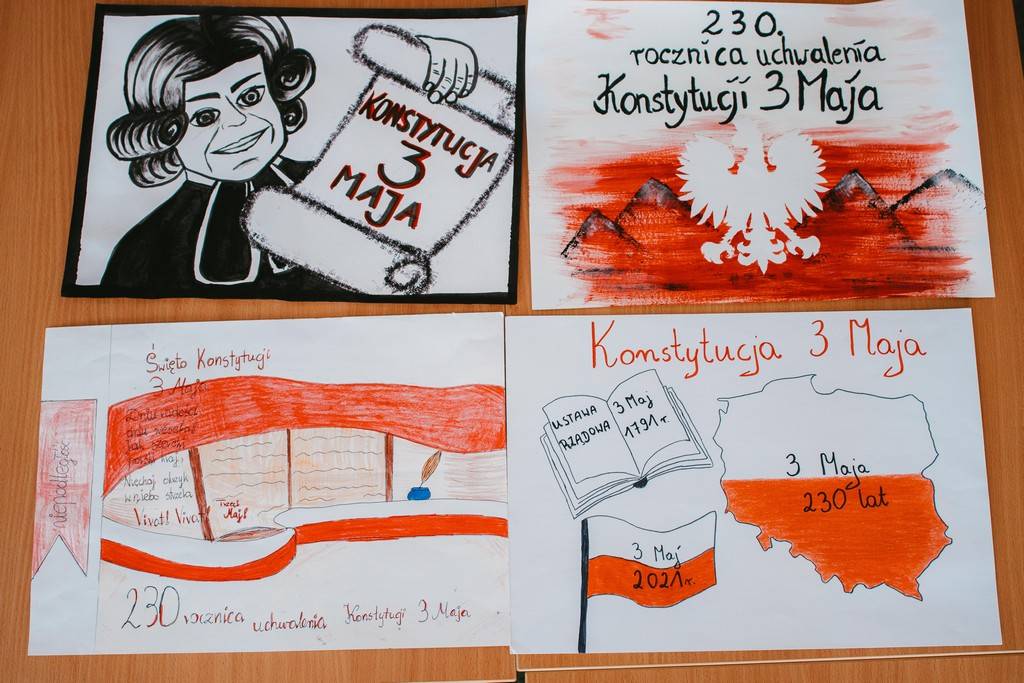 KONSTYTUCJA
3
MAJA
230.
rocznica uchwalenia
Konstytucji 3 Maja
Święto Konstytucji
3 Maja
niepodległość
Niechaj okrzyk
w niebo strzela
Vivat! Vivat!
Trzeci
Maj!
230 rocznica uchwalenia Konstytucji 3 Maja
Konstytucja 3 Maja
USTAWA
RZĄDOWA
3 Maj
1791 r.
3 Maja
230 lat
3 Maj
2021 r.